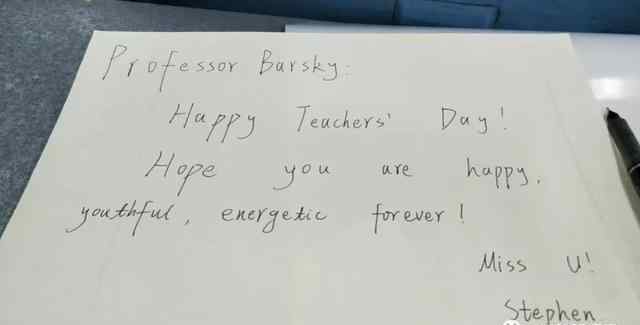 Professor Barsky:
Happy Teachers' Day!
Hope you are happy,
youthful, energetic forever!
Miss U!
Stephen